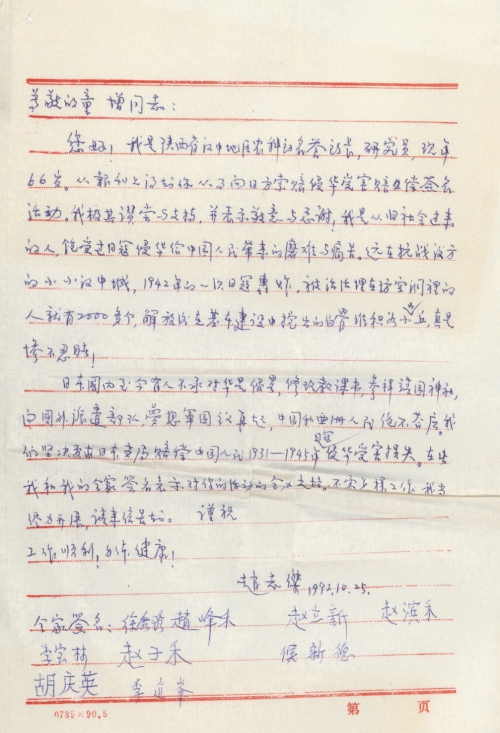 尊敬的童 增同志：
您好！我是陕西省汉中地区农科所名誉所长，研究员，现年
66岁。从报刊上得知你从事向日方索赔侵华受害赔偿签名
活动，我极其赞赏与支持，并表示敬意与感谢！我是从旧社会过来
的人，饱受过日寇侵华给中国人民带来的磨难与痛苦。远在抗战后方
的小小汉中城，1942年的一次日寇轰炸，被活活埋在防空洞裡的
人就有2000多个，解放后在基本建设中挖出的白骨堆积为小丘，真是
惨不忍睹！
日本国内至今有人不承认对华是侵略，修改教课书，参拜靖国神社，
向国外派遣部队，梦想军国主义再起，中国和亚洲人民绝不答应。我
们坚决要求日本政府赔偿中国人民1931—1945年日寇侵华受害损失。在此
我和我的全家签名表示对你的活动的全义支持。不实上样工作，我当
尽力开展，请来信告知。 谨祝
工作顺利！身体健康！
赵志杰 1992.10.25.
全家签名： 赵峰禾 赵立新 赵滨禾
李宝林 赵子禾 侯新穗
胡庆英 李
0785×90.5 第 页